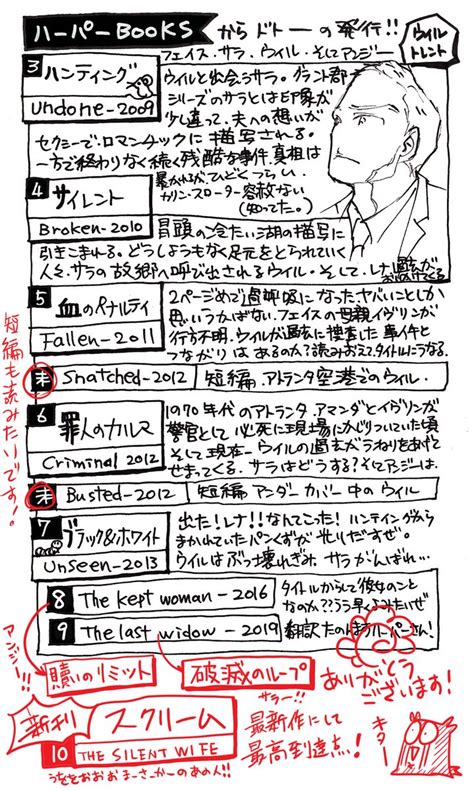 ハーパーBOOKSからドトーの発行!!
ウィルトレント
フェイス、サラ、ウィル、そしてアンジー
3 ハンティング
undone-2009
ウィルと出会うサラ。グラント郡
シリーズのサラとは印象が
少し違って、夫への想いが
セクシーでロマンチックに描写される。
一方で終わりなく続く残酷な事件、真相は
暴かれるが、ひどくつらい
カリン・スローター容赦ない
(知ってた。)
4 サイレント
Broken-2010
冒頭の冷たい湖の描写に
引きこまれる。どうしようもなく足元をとられていく
人々。サラの故郷へ呼び出されるウィル。そして、レナ。過去が
おいかけてくる
5 血のペナルティ
Fallen-2011
2ページめで過呼吸になった。ヤバいことしか
思いうかばない。フェイスの母親イヴリンが
行方不明。ウィルが過去に捜査した事件と
つながりはあるのか?読みおえ、タイトルにうなる。
短編も読みたいです!
未 Snatched-2012 短編.アトランタ空港でのウィル.
6 罪人のカルマ
Criminal 2012
1970年代のアトランタ、アマンダとイヴリンが
警官として必死に現場にかじりついていた頃
そして現在─ウィルの過去がうねりをあげて
せまってくる。サラはどうする?そしてアンジーは.
未 Busted-2012 短編 アンダーカバー中のウィル
7 ブラック&ホワイト
Unseen-2013
出た!レナ!!なんてこった!ハンティングから
まかれていたパンくずが光りだすぜ。
ウィルはぶっ壊れぎみ サラがんばれ…
8 The kept woman-2016
タイトルからして彼女のこと
なのか???うう早くよみたいぜ
9 The last widow-2019
翻訳たのむハーパーさん!
アンジー!!!
贖いのリミット
破滅のループ
ありがとうございます!
新刊 スクリーム
10 THE SILENT WIFE
サラー!!
最新作にして
最高到達点!
キター
うををおおおまーさーかーのあの人!!